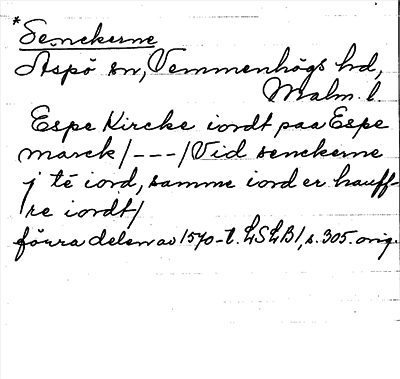 *Senckerne
Äspö sn, Vemmenhögs hd,
Malm. l.
Espe Kircke iordt paa Espe
marck /---/ Vid senckerne
j te iord, samme iord er hauff-
re iordt/
förra delen av 1570-t. LSLB1, s. 305. orig.